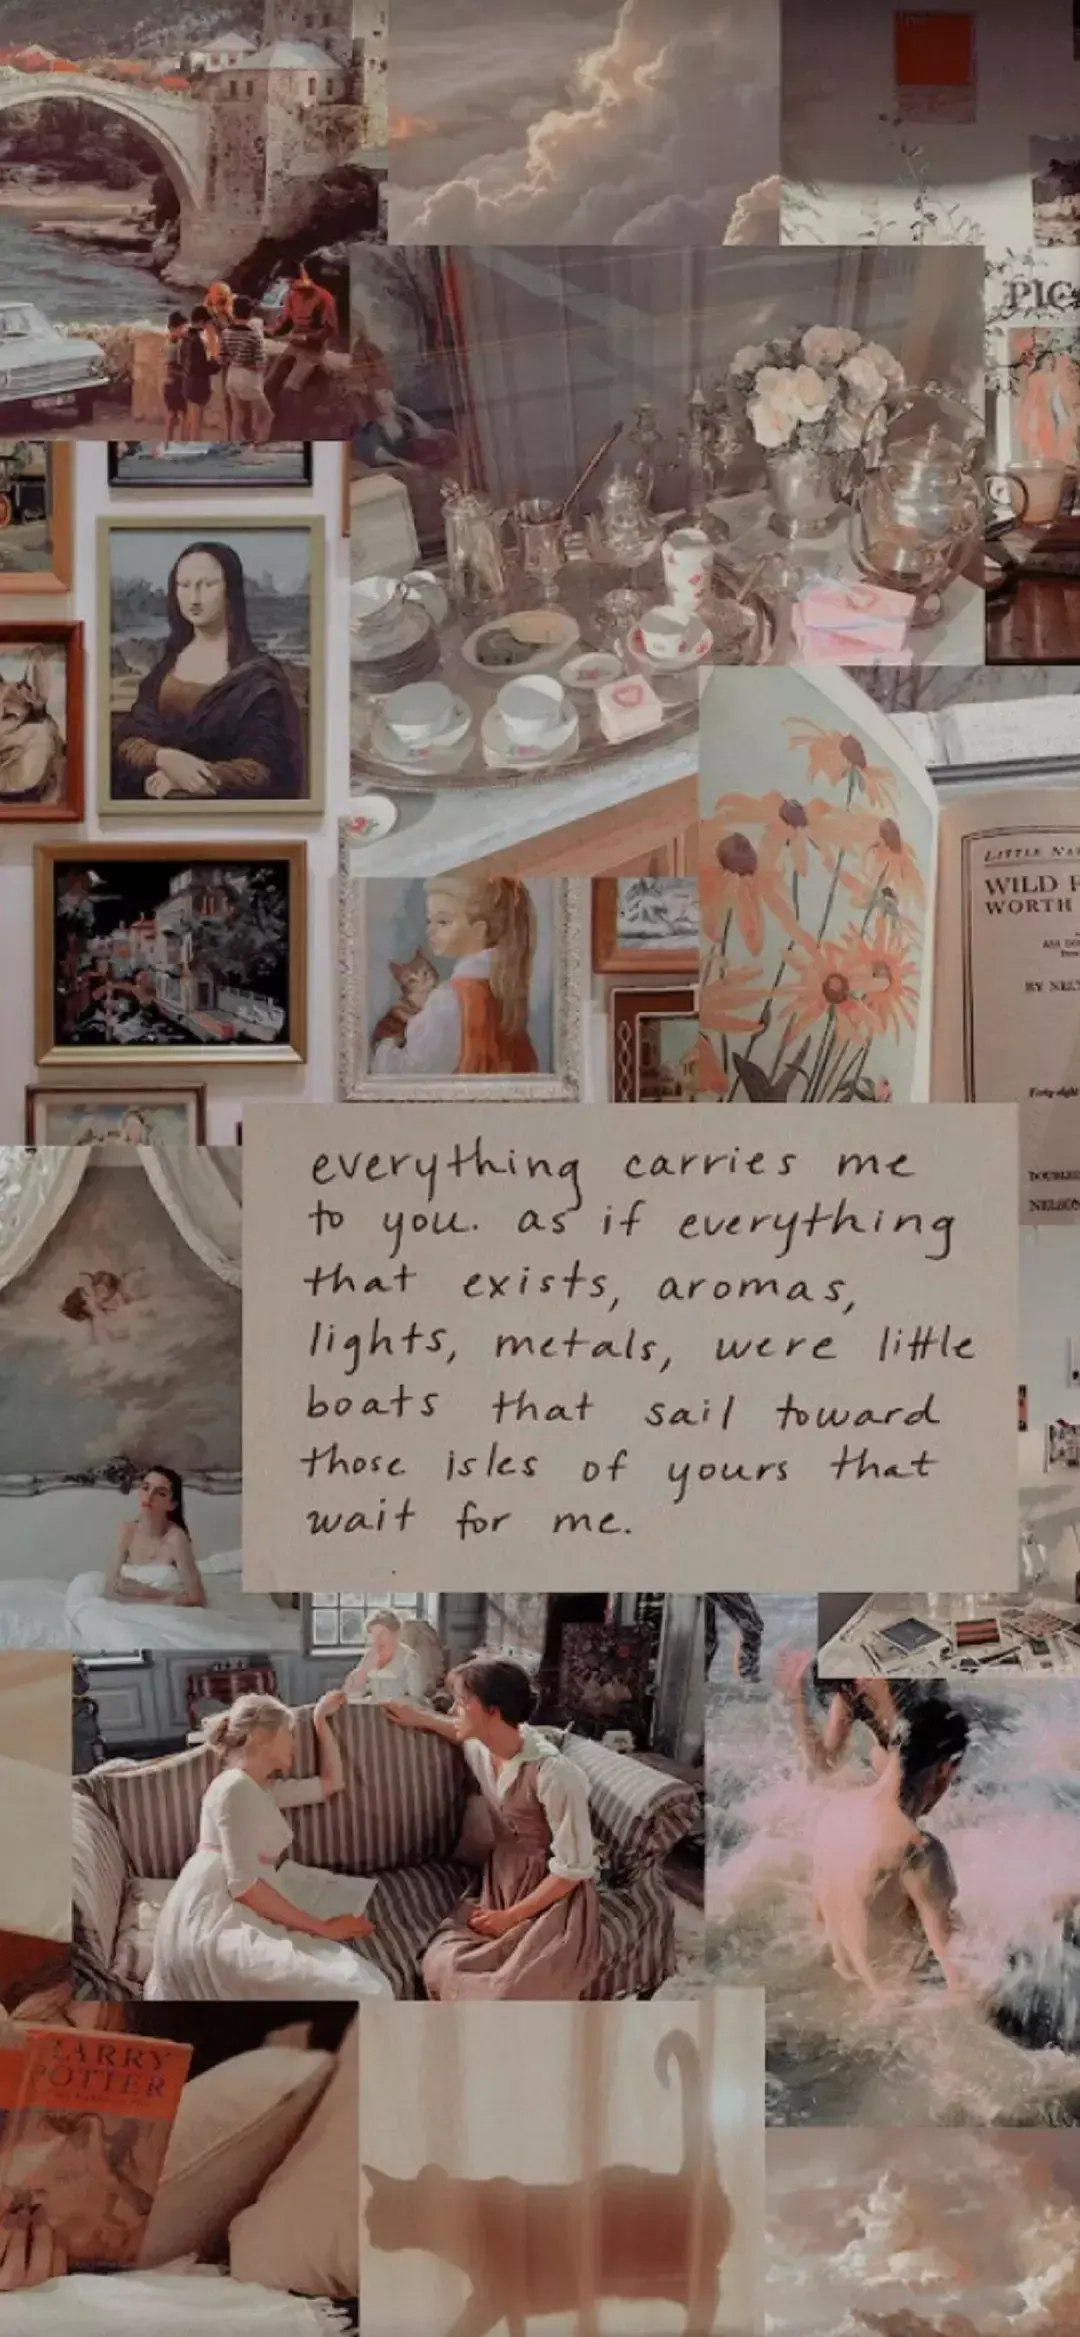 PIC
LITTLE NA
WILD F
WORTH
BY NEL
Forty-eight
DOUBLED
NELSON
everything carries me
to you. as if everything
that exists, aromas,
lights, metals, were little
boats that sail toward
those isles of yours that
wait for me.
HARRY
POTTER